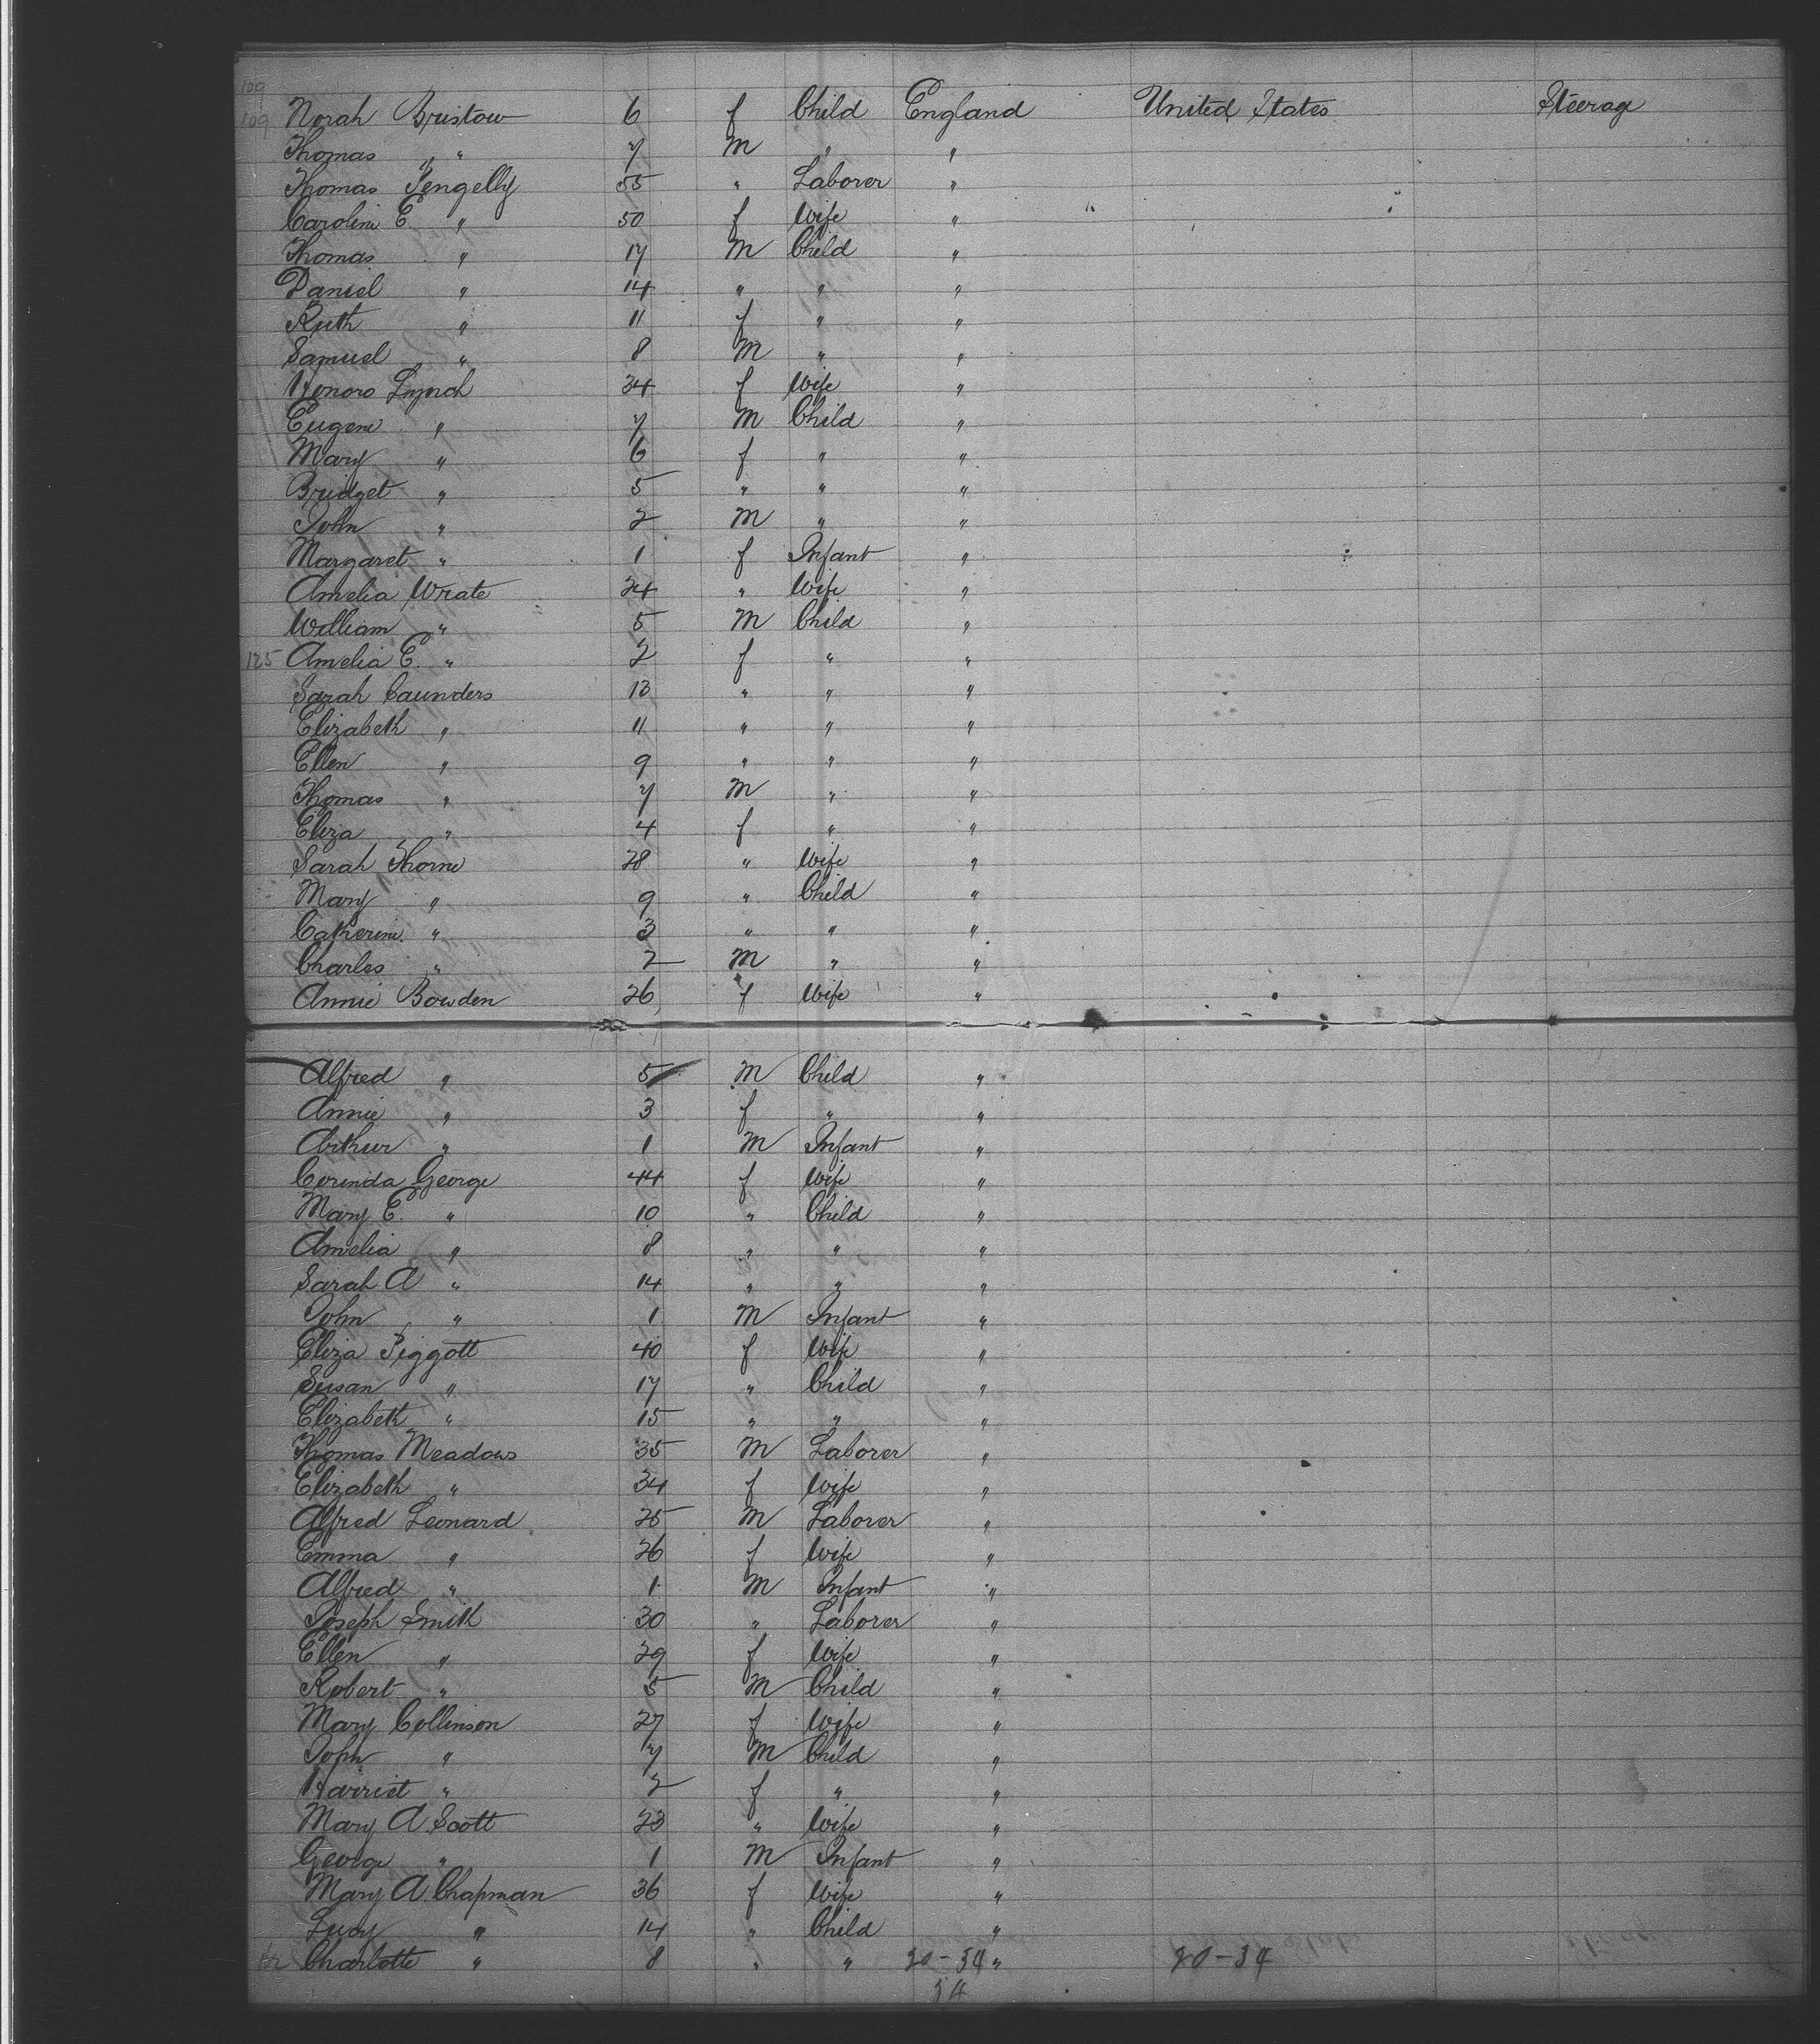 109
109 Norah Bristow 6 f Child England United States Steerage
Thomas " " 7 M " "
Thomas Pengelly 55 " Laborer "
Caroline E. " 50 f Wife " " "
Thomas " 17 M Child "
Daniel " 14 " " "
Ruth " 11 f " "
Samuel " 8 M " "
Honoro Lynch 34 f Wife "
Eugene " 7 M Child "
Mary " 6 f " "
Bridget " 5 " " "
John " 2 M " "
Margaret " 1 f Infant "
Amelia Wrate 24 " Wife "
William " 5 M Child "
125 Amelia E. " 2 f " "
Sarah Caunders 13 " " "
Elizabeth " 11 " " "
Ellen " 9 " " "
Thomas " 7 M " "
Eliza " 4 f " "
Sarah Thorne 28 " Wife "
Mary " 9 " Child "
Catherine " 3 " " "
Charles " 2 M " "
Annie Bowden 26 f Wife "
Alfred " 5 M Child "
Annie " 3 f " "
Arthur " 1 M Infant "
Corinda George 44 f Wife "
Mary E. " 10 " Child "
Amelia " 8 " " "
Sarah A " 14 " " "
John " 1 M Infant "
Eliza Piggott 40 f Wife "
Susan " 17 " Child "
Elizabeth " 15 " " "
Thomas Meadows 35 M Laborer "
Elizabeth " 34 f Wife "
Alfred Leonard 25 M Laborer "
Emma " 26 f Wife "
Alfred " 1 M Infant "
Joseph Smith 30 " Laborer "
Ellen " 29 f Wife "
Robert " 5 M Child "
Mary Collinson 27 f Wife "
John " 7 M Child "
Harriet " 2 f " "
Mary A Scott 23 " Wife "
George " 1 M Infant "
Mary A Chapman 36 f Wife "
Lucy " 14 " Child "
Charlotte " 8 " " 20-34 " 20-34
54